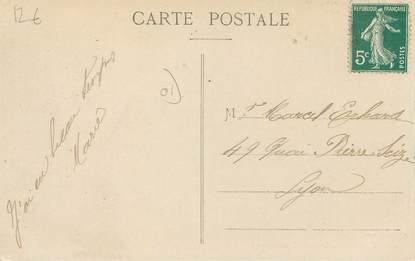 12€
CARTE POSTALE
REPUBLIQUE FRANÇAISE
5c
POSTES
01
J'ai eu beau temps
Marie
Mr Marcel Echard
49 Quai Pierre Scize
Lyon